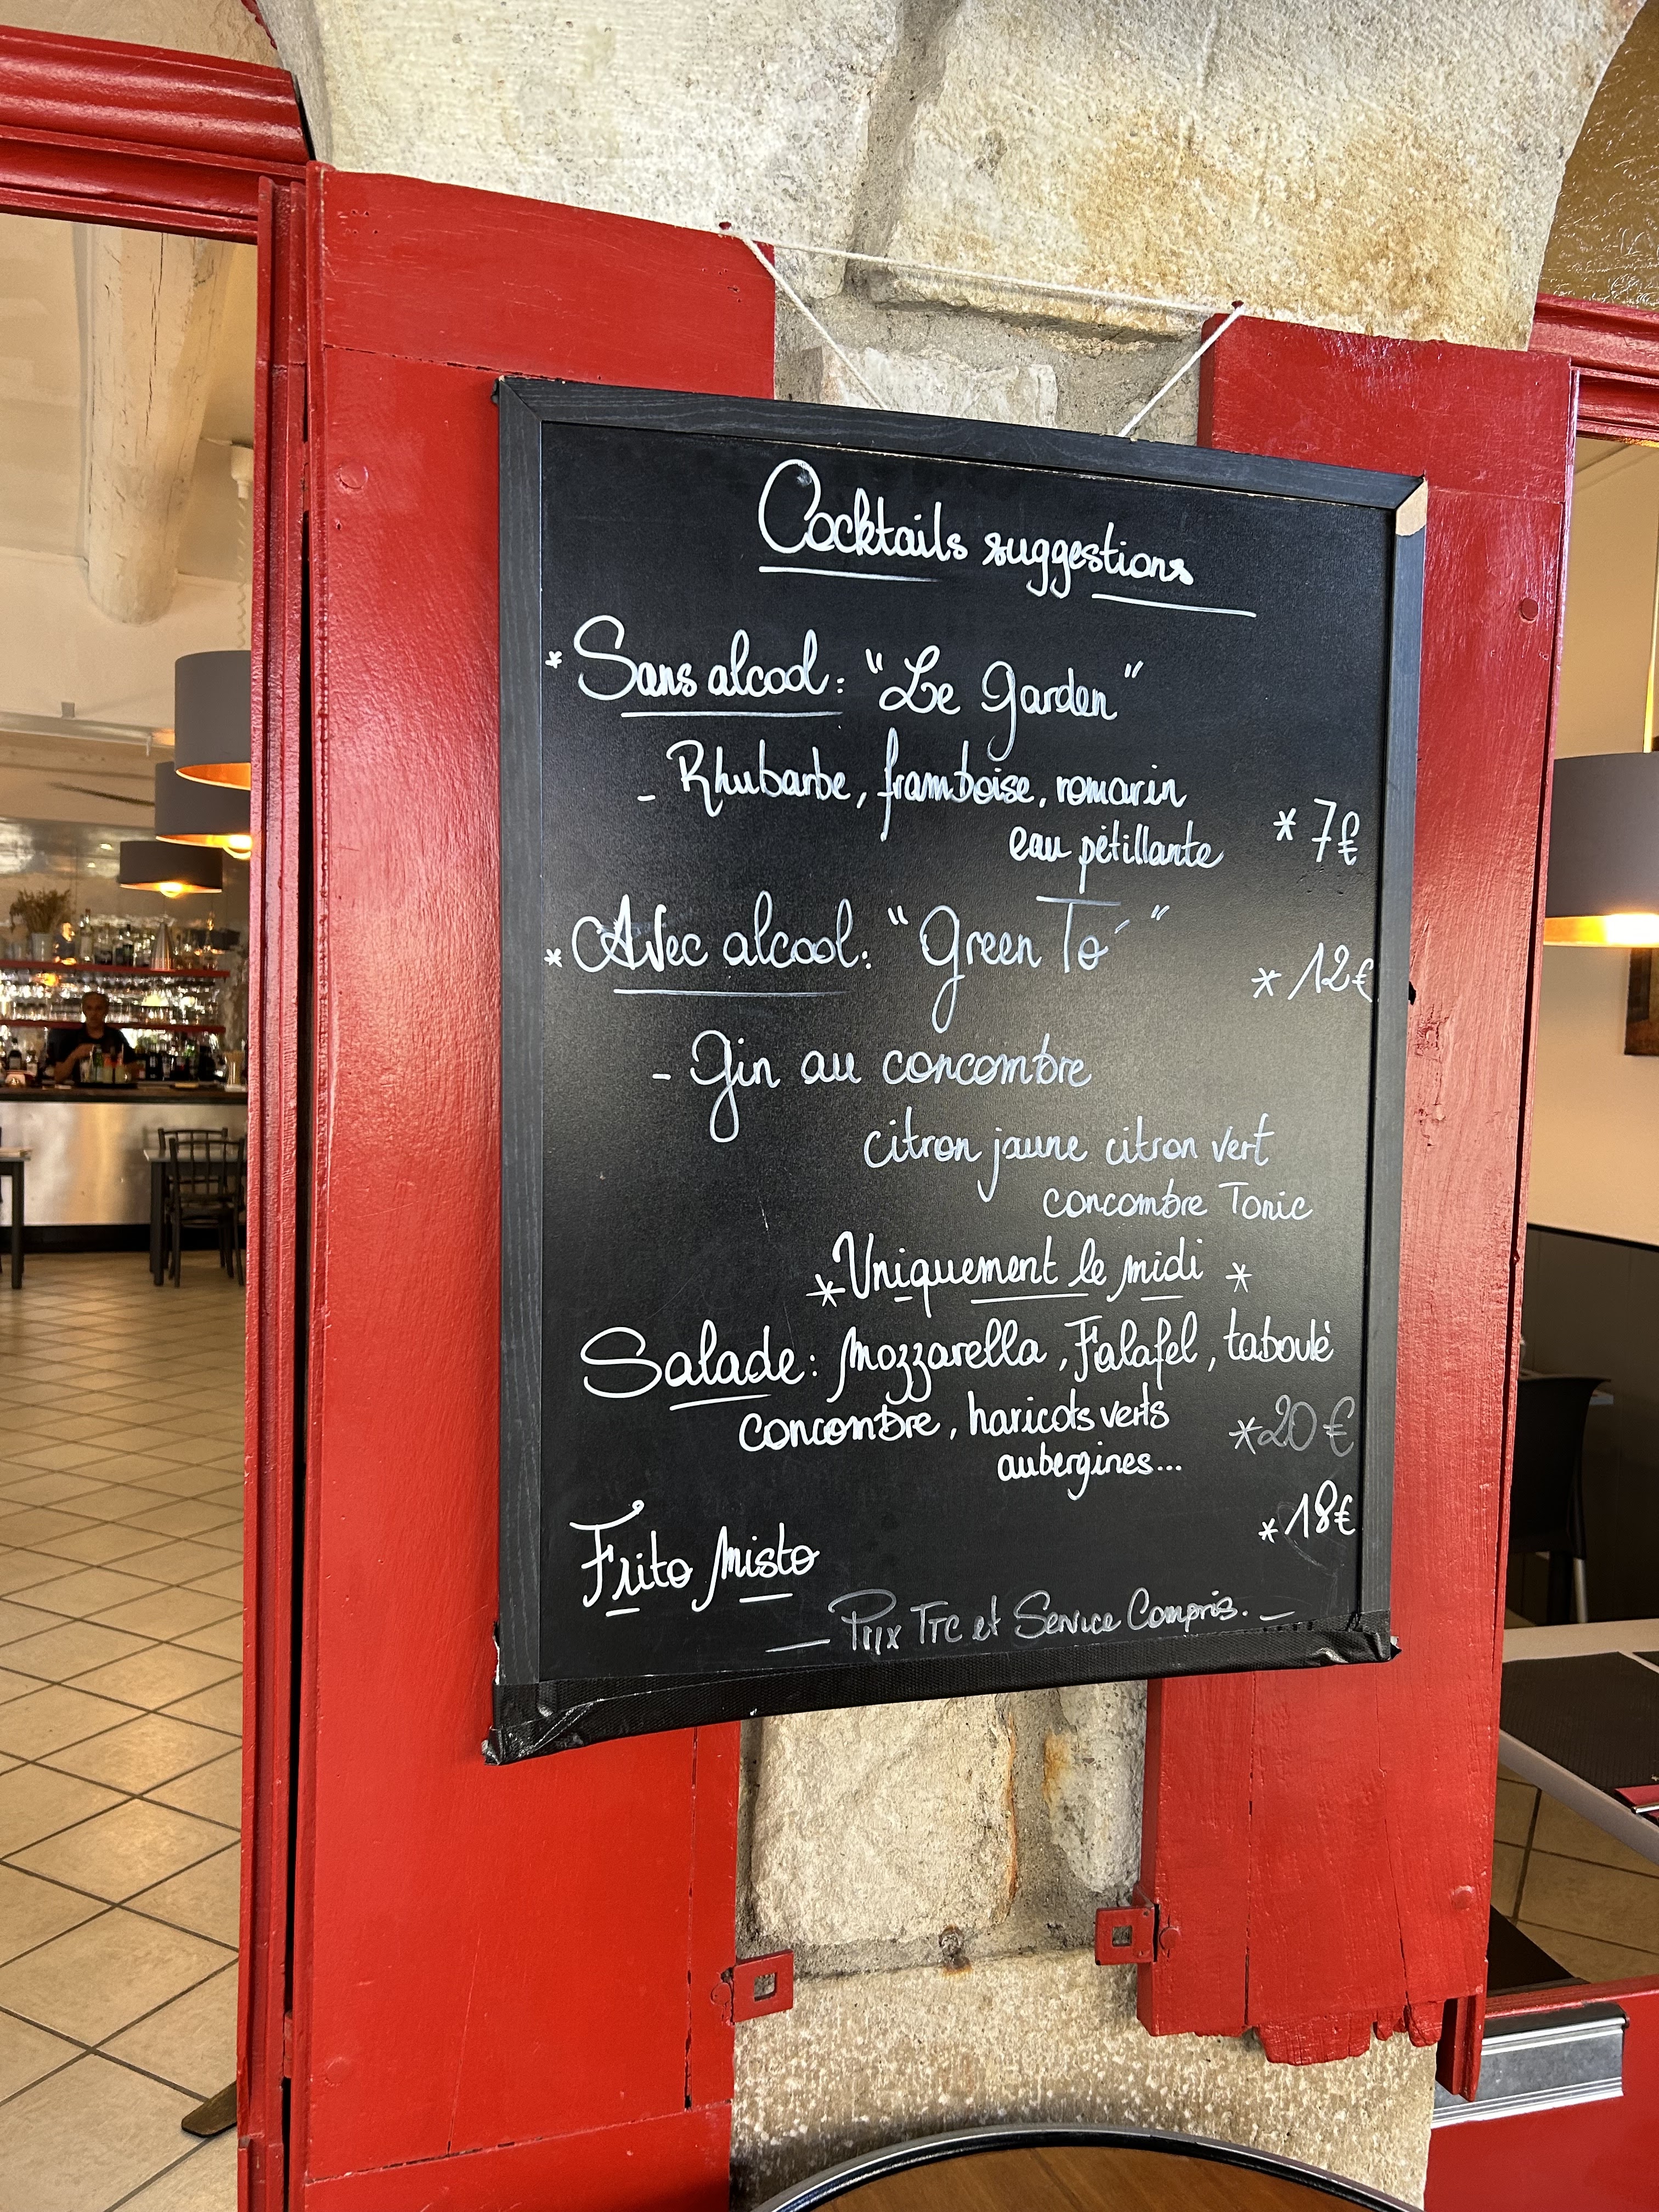 Cocktails suggestions
* Sans alcool: "Le Garden"
- Rhubarbe, framboise, romarin
eau pétillante * 7€
* Avec alcool: "Green To" * 12€
- Gin au concombre
citron jaune citron vert
concombre Tonic
* Uniquement le midi *
Salade: Mozzarella, Falafel, taboulé
concombre, haricots verts * 20€
aubergines...
Frito Misto * 18€
— Prix TTC et Service Compris. —